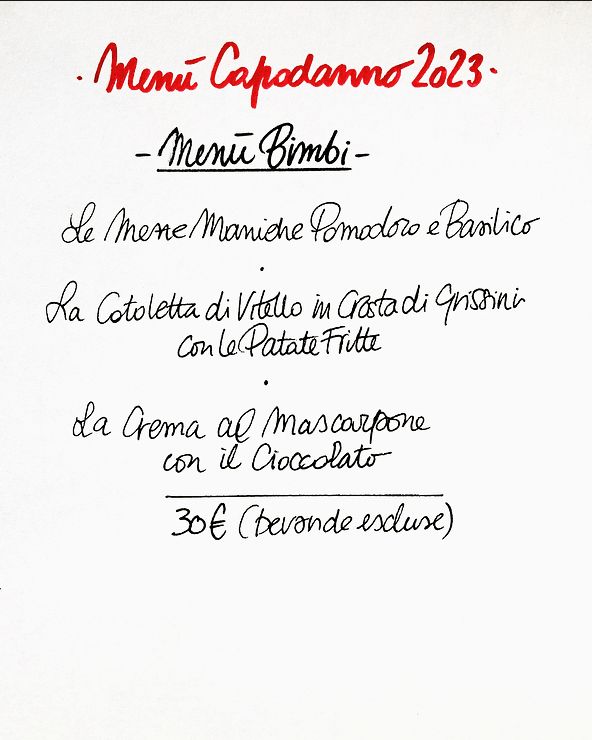 · Menù Capodanno 2023 ·
- Menù Bimbi -
Le Mezze Maniche Pomodoro e Basilico
·
La Cotoletta di Vitello in Crosta di Grissini
con le Patate Fritte
·
La Crema al Mascarpone
con il Cioccolato
30€ (bevande escluse)